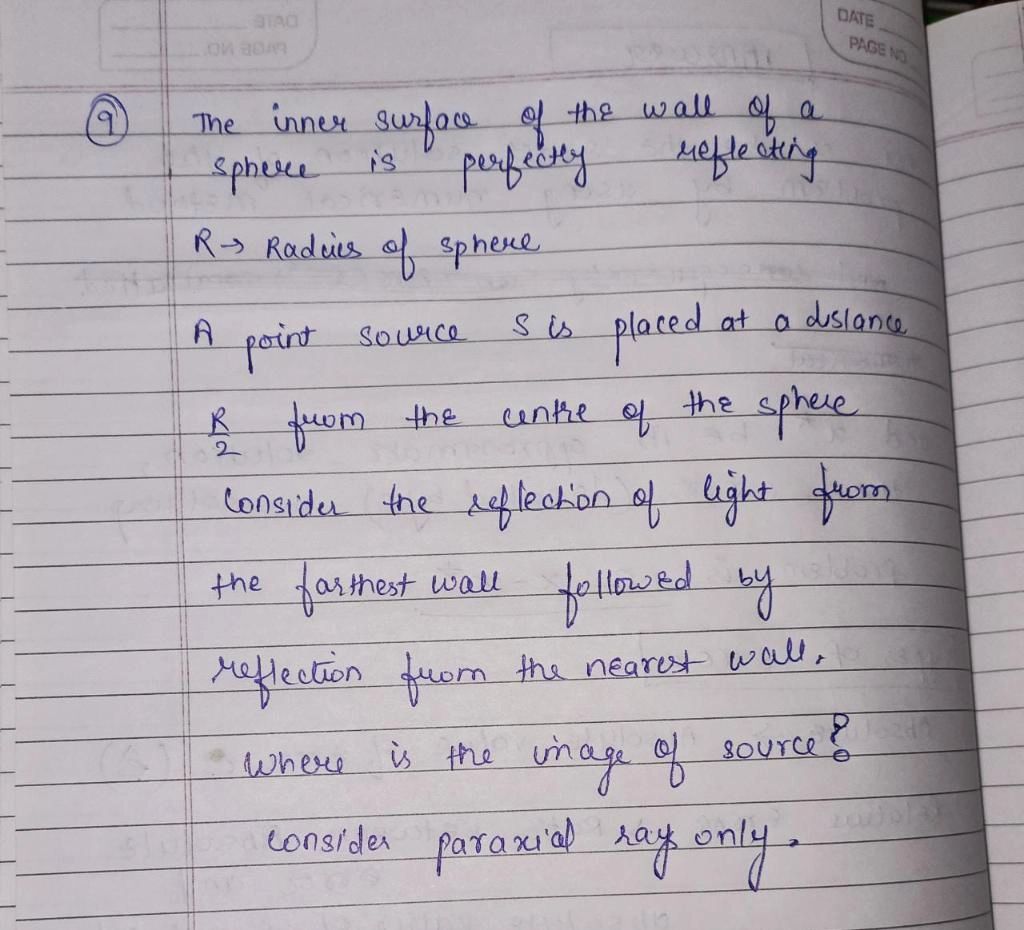 DATE
PAGE NO
9 The inner surface of the wall of a
sphere is perfectly reflecting
R → Radius of sphere
A point source S is placed at a dislance
R/2 from the centre of the sphere
Consider the reflection of light from
the farthest wall followed by
reflection from the nearest wall.
Where is the image of source?
consider paraxial rays only.